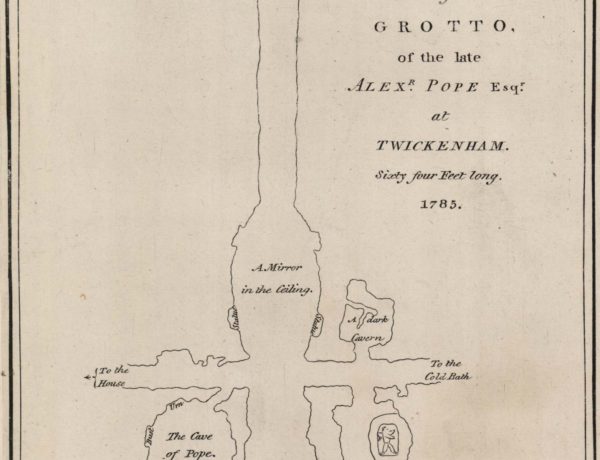 GROTTO,
of the late
ALEX.R POPE Esq.r
at
TWICKENHAM.
Sixty four Feet long.
1785.
A Mirror
in the Ceiling.
Statue
Statue
A dark
Cavern
To the
House
To the
Cold Bath
Urn
Bust
The Cave
of Pope.